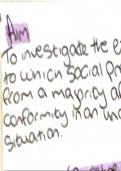 Aim
To investigate the e
to which social pr
from a majority af
conformity in an un
situation.